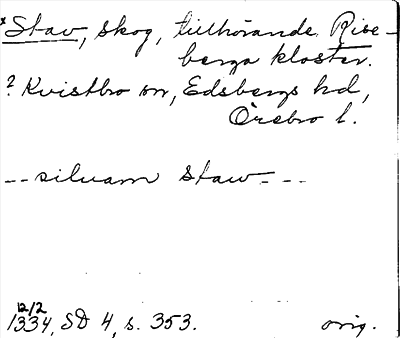 *Stav, skog, tillhörande Rise-
berga kloster.
? Kvistbro sn, Edsbergs hd,
Örebro l.
-- siluam staw - - -
12/2
1334, SD 4, s. 353. orig.